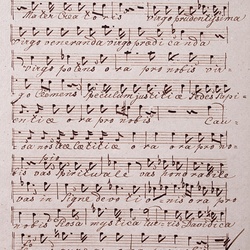 Mater Creatoris virgo prudentissima
virgo veneranda virgo prædicanda
virgo potens o ra pro nobis vir-
go Clemens Speculum justitiæ Sedes sapi-
entiæ o ra pro nobis Cau-
sa nostræ lætitiæ o ra ora pro no-
bis vas spirituale vas honorabile
vas in Signe devoti o-nis ora pro
nobis Rosa mystica turris Davidica